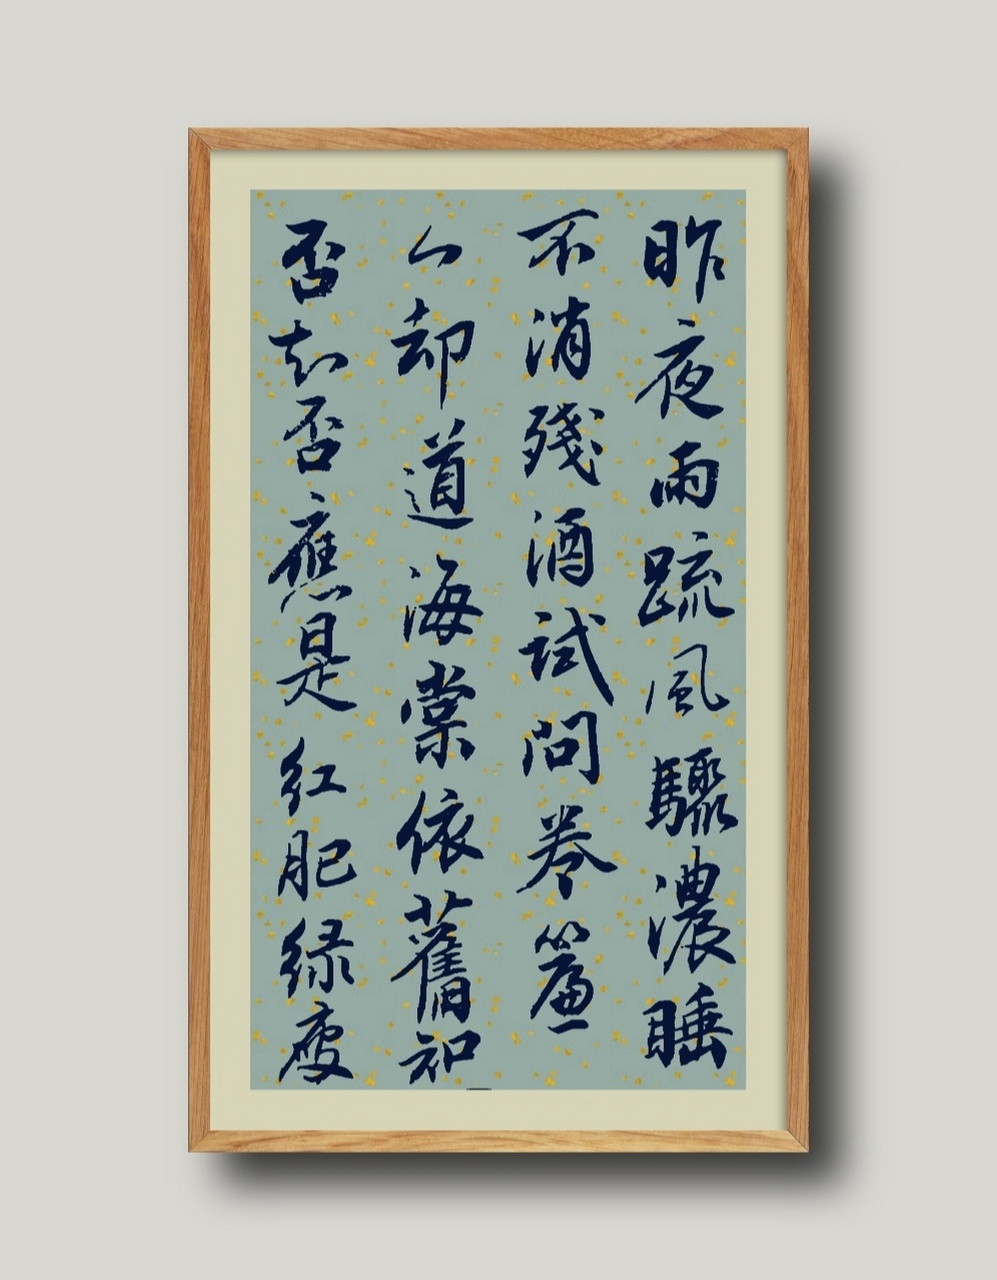 昨夜雨疏風驟濃睡
不消殘酒試問卷簾
人却道海棠依舊知
否知否應是紅肥綠瘦